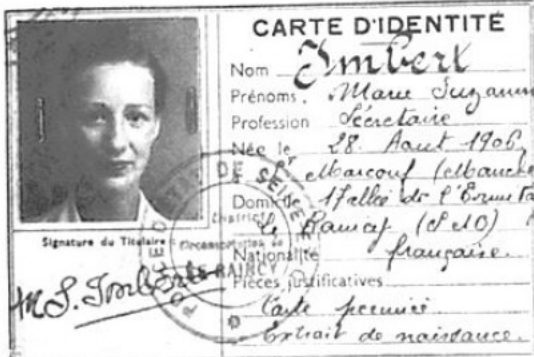 CARTE D'IDENTITÉ
Nom Imbert
Prénoms. Marie Suzanne
Profession Secrétaire
Née le 28 Aout 1906
Marcouf (Manche
Domicile 17 allée de l'Ermita
le Raincy (S & O)
Nationalité française.
Pièces justificatives
Carte
Extrait de naissance.
Signature du Titulaire
M S. Imbert
DE SEINE
District
Circonscription de
LE RAINCY